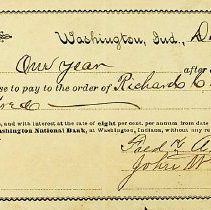 Washington, Ind., D
One year after
se to pay to the order of Richard C.
red
, and with interest at the rate of eight per cent. per annum from date
Washington National Bank, at Washington, Indiana, without any re
Fred
John W